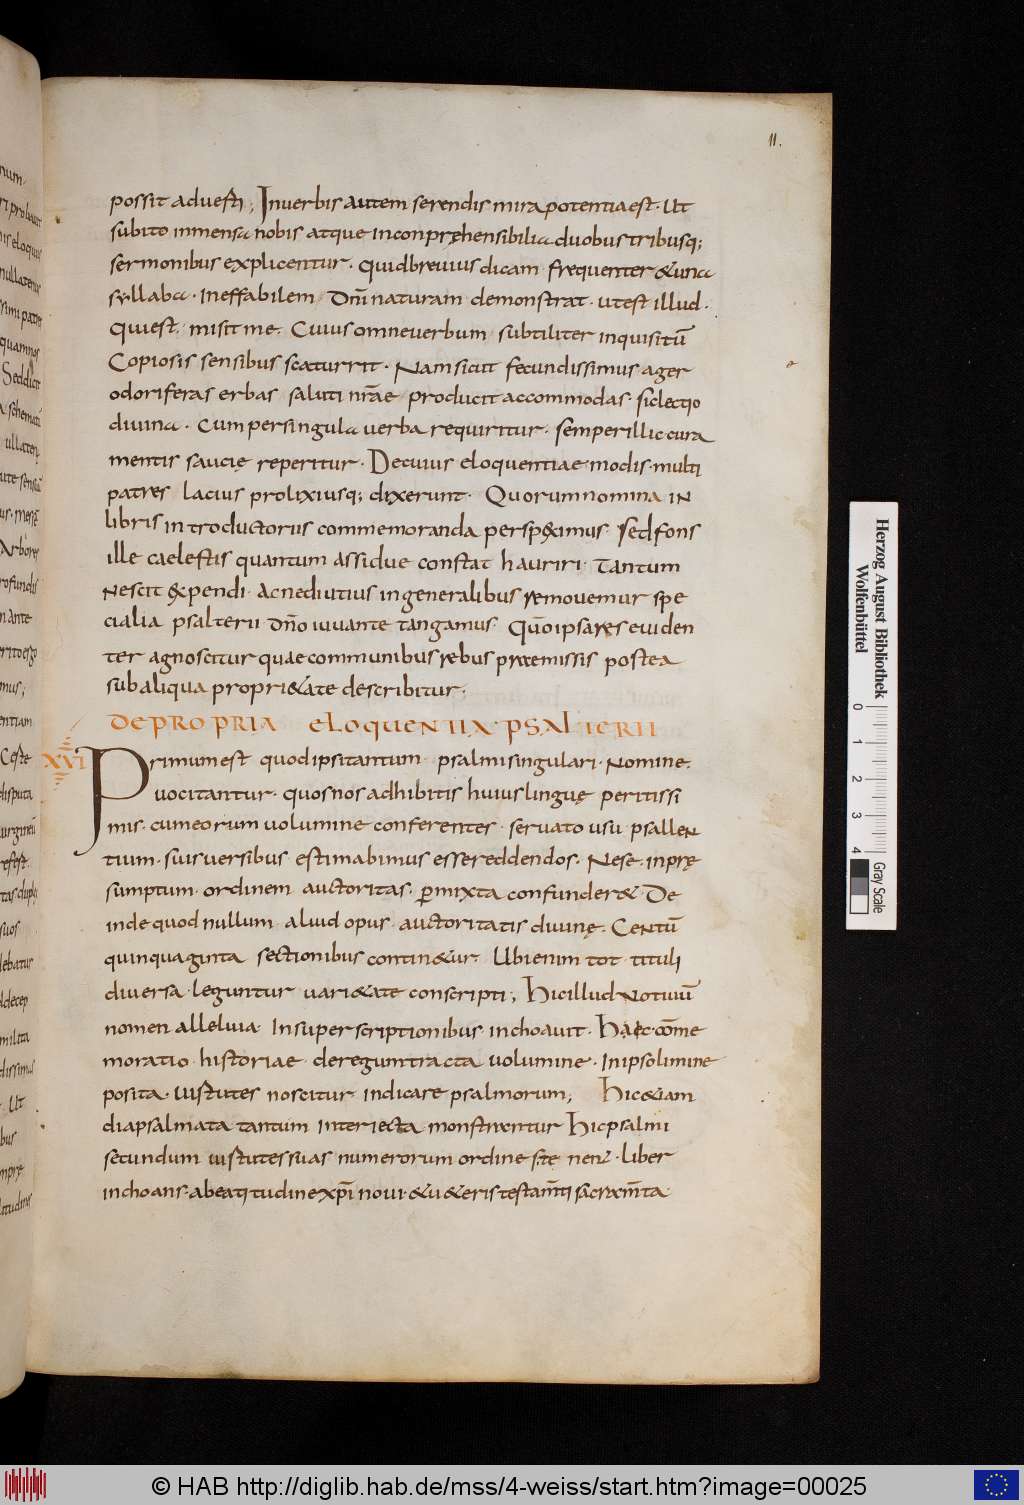 11.
possit advesti; In verbis autem serendis mira potentia est. Ut
subito inmensa nobis atque inconprehensibilia duobus tribusq;
sermonibus explicentur. quid brevius dicam frequenter & una
syllaba. ineffabilem dnī naturam demonstrat. ut est illud.
qui est. misit me. Cuius omne verbum subtiliter inquisitū
Copiosis sensibus scaturrit. Nam sicut fecundissimus ager
odoriferas erbas saluti nr̄ae producit accommodas. sic lectio
divina. Cum per singula verba requiritur. semper illic cura
mentis saucię reperitur. De cuius eloquentiae modis multi
patres lacius prolixiusq; dixerunt. Quorum nomina in
libris introductoriis commemoranda perspeximus. Sed fons
ille caelestis quantum assidue constat hauriri. Tantum
Nescit expendi. Ac ne diutius in generalibus remoremur spe
cialia psalterii dn̄o iuvante tangamus. Qūo ipsa res eviden
ter agnoscitur quae communibus rebus praemissis postea
sub aliqua propri&ate describitur.
DE PROPRIA ELOQUENTIA PSALTERII
XVI Primum est quod ipsi tantum psalmi singulari. Nomine.
vocitantur. quos nos adhibitis huius linguę peritissi
mis. cum eorum volumine conferentes. servato usu psallen
tium. suis versibus estimabimus esse reddendos. Ne se. in prę
sumptum. ordinem auctoritas. p̱mixta confunder&. De
inde quod nullum aliud opus auctoritatis divinę. Centū
quinquaginta sectionibus contin&ur. Ubi enim tot tituli
diversa leguntur vari&ate conscripti; Hic illud Notivū
nomen alleluia. In superscriptionibus inchoavit. Haec cōme
moratio historiae de regum tracta volumine. In ipso limine
posita. virtutes noscitur indicare psalmorum; Hic &iam
diapsalmata tantum interiecta monstrantur Hic psalmi
secundum virtutes suas numerorum ordine
inchoans. a beatitudine xp̄i novi. & v&eris testam̄ti sacram̄ta
Herzog August Bibliothek
Wolfenbüttel
0 1 2 3 4
Gray Scale
© HAB http://diglib.hab.de/mss/4-weiss/start.htm?image=00025